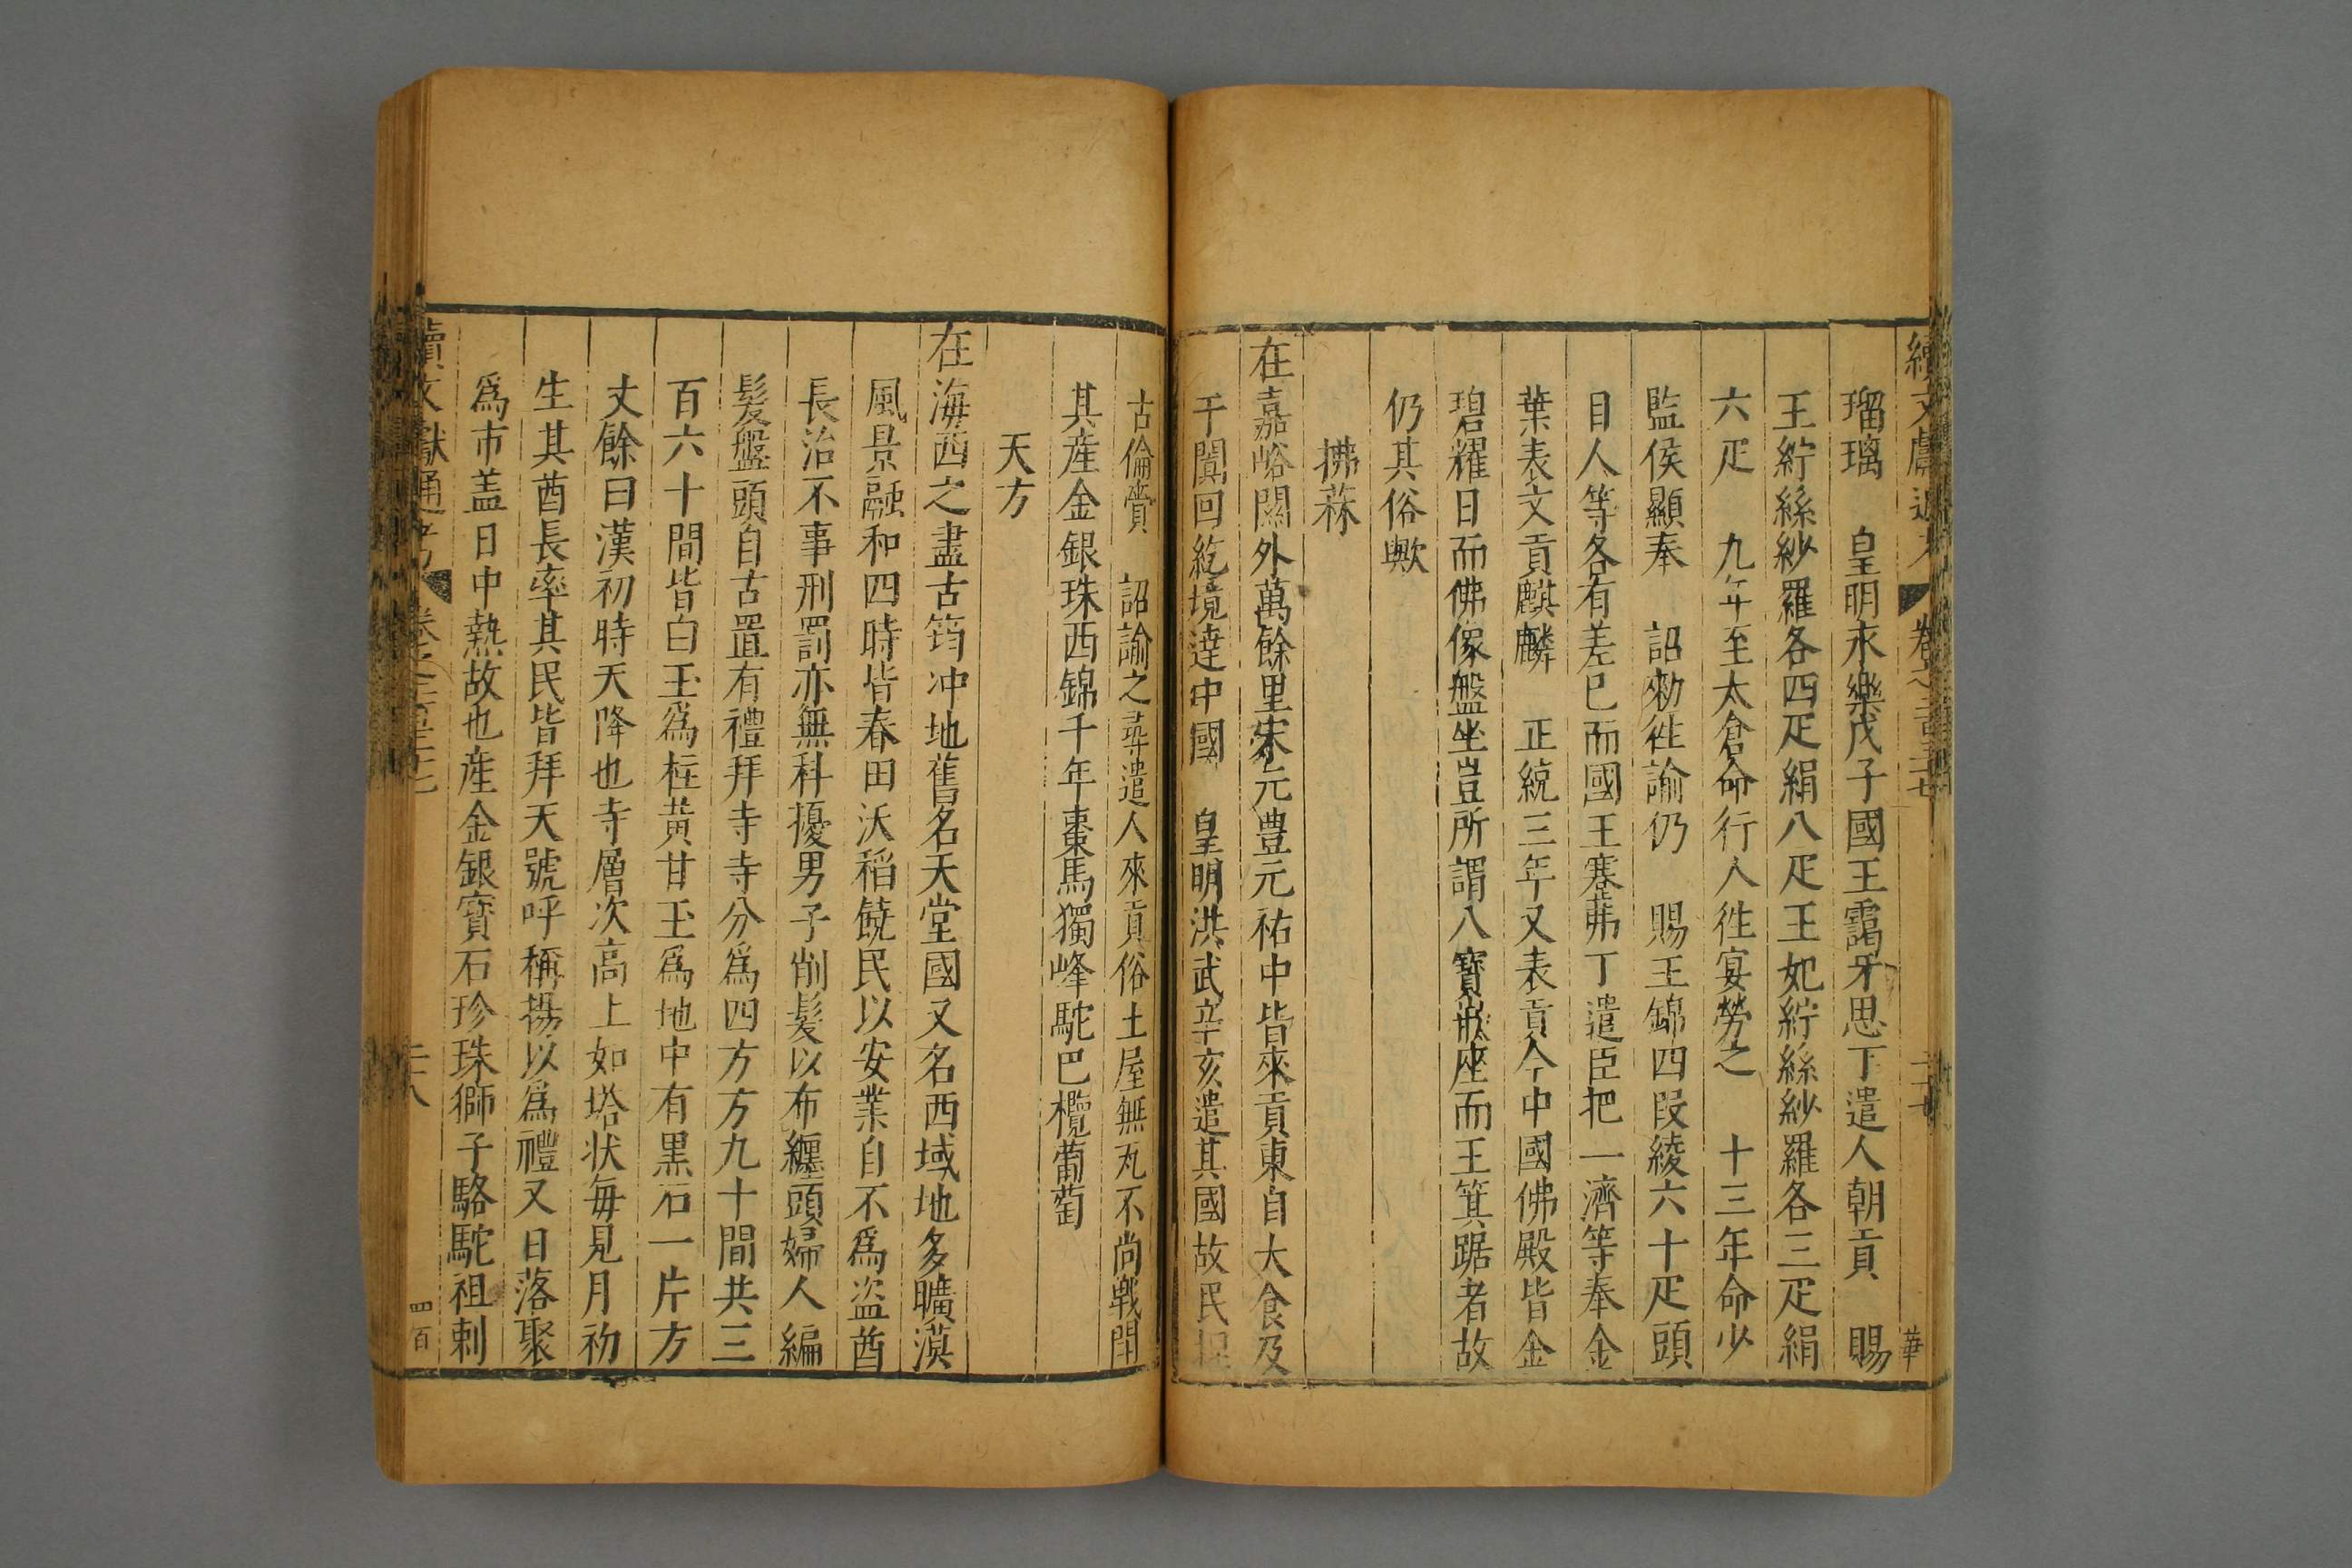 續文獻通考 卷之二百三十七 二十七 華
瑠璃 皇明永樂戊子國王靄牙思丁遣人朝貢 賜
王紵絲紗羅各四疋絹八疋王妃紵絲紗羅各三疋絹
六疋 九年至太倉命行人徃宴勞之 十三年命少
監侯顯奉 詔勑徃諭仍 賜王錦四段綾六十疋頭
目人等各有差巳而國王塞茀丁遣臣把一濟等奉金
葉表文貢麒麟 正統三年又表貢今中國佛殿皆金
碧耀日而佛像盤坐豈所謂八寶嵌座而王箕踞者故
仍其俗歟
拂菻
在嘉峪關外萬餘里宋元豊元祐中皆來貢東自大食及
于闐回紇境達中國 皇明洪武辛亥遣其國故民捏
古倫賫 詔諭之尋遣人來貢俗土屋無瓦不尚戰鬥
其産金銀珠西錦千年棗馬獨峰駝巴欖葡萄
天方
在海西之盡古筠冲地舊名天堂國又名西域地多曠漠
風景融和四時皆春田沃稻饒民以安業自不爲盜酋
長治不事刑罰亦無科擾男子削髮以布纏頭婦人編
髮盤頭自古置有禮拜寺寺分爲四方方九十間共三
百六十間皆白玉爲柱黄甘玉爲地中有黒石一片方
丈餘曰漢初時天降也寺層次高上如塔状毎見月初
生其酋長率其民皆拜天號呼稱揚以爲禮又日落聚
爲市盖日中熱故也産金銀寳石珍珠獅子駱駝祖剌
續文獻通考 卷之二百三十七 二十八 四百